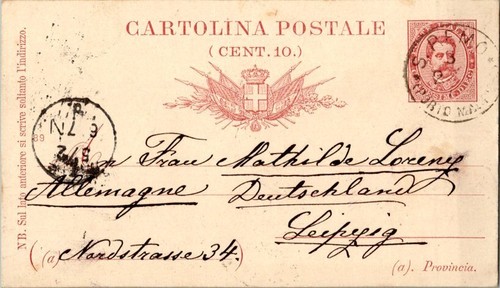 CARTOLINA POSTALE
(CENT. 10.)
NB. Sul lato anteriore si scrive soltanto l'indirizzo.
Frau Mathilde Lorenz
Allemagne Deutschland
Leipzig
(a) Nordstrasse 34.)
(a). Provincia.